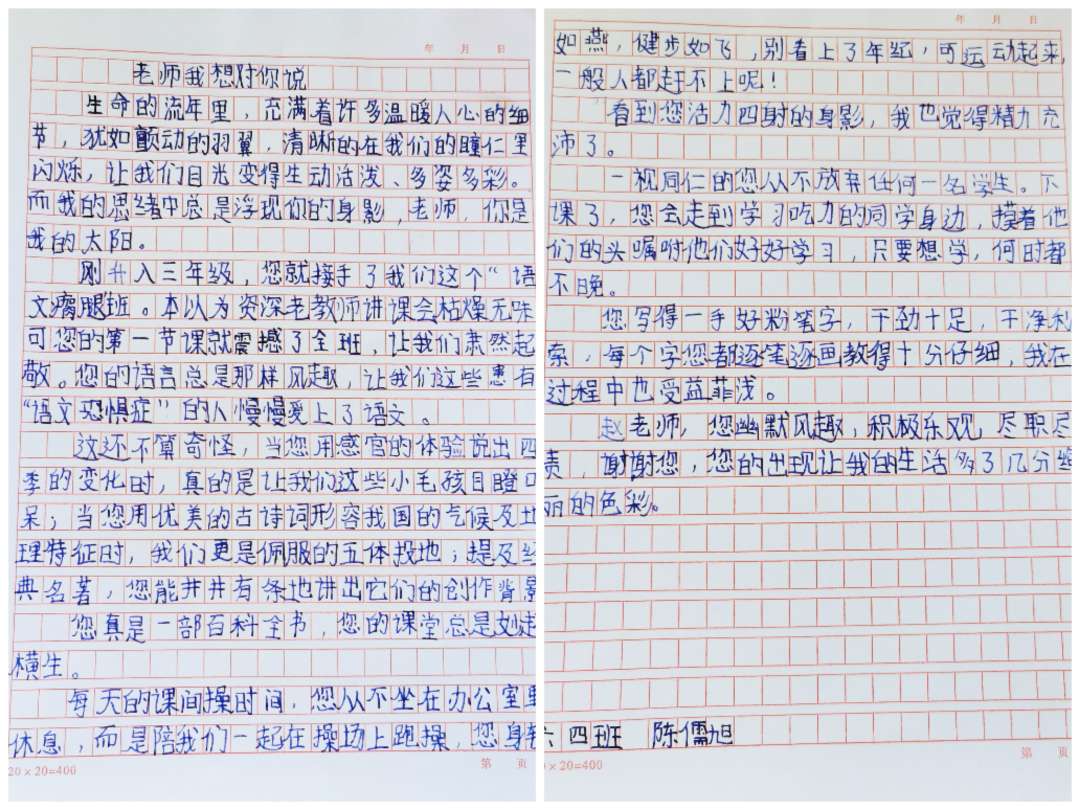 年 月 日
老师我想对你说
生命的流年里，充满着许多温暖人心的细
节，犹如颤动的羽翼，清晰的在我们的瞳仁里
闪烁，让我们目光变得生动活泼、多姿多彩。
而我的思绪中总是浮现你的身影，老师，你是
我的太阳。
刚升入三年级，您就接手了我们这个“语
文瘸腿班。本以为资深老教师讲课会枯燥无味
可您的第一节课就震撼了全班，让我们肃然起
敬。您的语言总是那样风趣，让我们这些患有
“语文恐惧症”的人慢慢爱上了语文。
这还不算奇怪，当您用感官的体验说出四
季的变化时，真的是让我们这些小毛孩目瞪口
呆；当您用优美的古诗词形容我国的气候及地
理特征时，我们更是佩服的五体投地；提及经
典名著，您能井井有条地讲出它们的创作背景
您真是一部百科全书，您的课堂总是妙趣
横生。
每天的课间操时间，您从不坐在办公室里
休息，而是陪我们一起在操场上跑操，您身轻
20×20=400
第 页
年 月 日
如燕，健步如飞，别看上了年纪，可运动起来，
一般人都赶不上呢！
看到您活力四射的身影，我也觉得精力充
沛了。
一视同仁的您从不放弃任何一名学生。下
课了，您会走到学习吃力的同学身边，摸着他
们的头嘱咐他们好好学习，只要想学，何时都
不晚。
您写得一手好粉笔字，干劲十足，干净利
索，每个字您都逐笔逐画教得十分仔细，我在
过程中也受益菲浅。
赵老师，您幽默风趣，积极乐观，尽职尽
责，谢谢您，您的出现让我的生活多了几分绚
丽的色彩。
六四班 陈儒旭
0×20=400
第 页